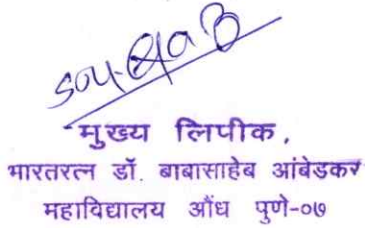 मुख्य लिपीक,
भारतरत्न डॉ. बाबासाहेब आंबेडकर
महाविद्यालय औंध पुणे-०७